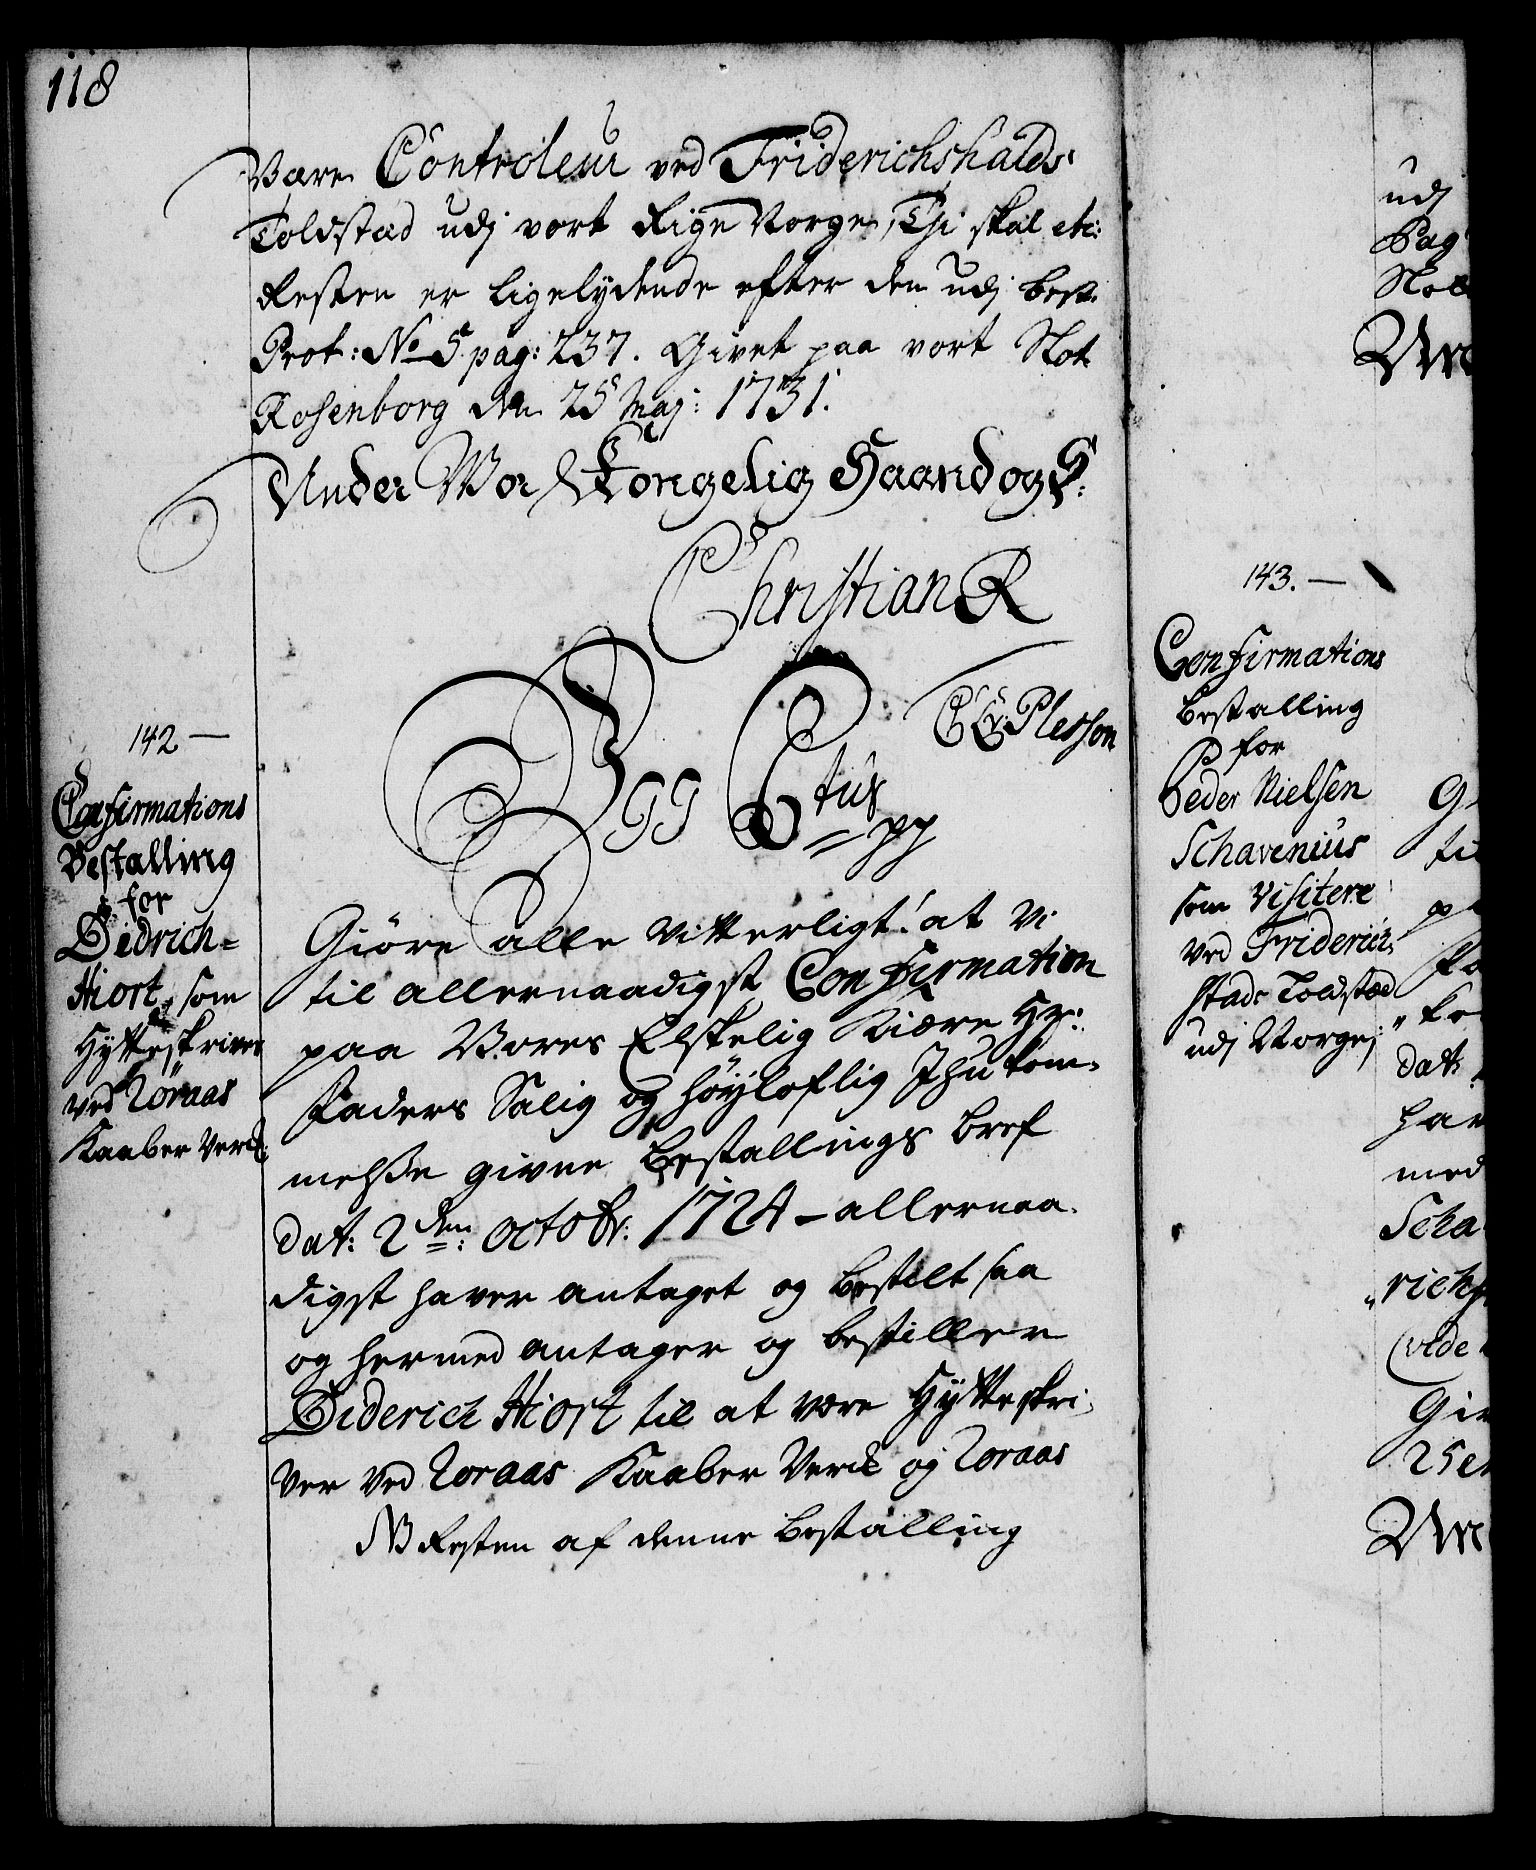 118
Være Controleur ved Friderichshalds
Toldsted udj vort Rige Norge, Thi skal etc:
Resten er ligelydende efter den udj best:
Prot: No 5 pag: 237. Givet paa vort Slot
Rosenborg den 25 Maj: 1731.
Under Vor Kongelig Haand og S:
Christian R
C A: Plesson
142 —
Confirmations
Bestalling
for
Didrich=
Hiort, som
Hytteskriver
ved Röraas
Kaaber Verk:
Vii C6tus
pp
Giöre alle vitterligt: at Vi
til allernaadigst Confirmation
paa Vores Elskelig Kiære Hr:
Faders Salig og höyloflig Ihukom-
melse givne Bestallings bref
dat: 2den: Octobr: 1724 – allernaa-
digst haver antaget og bestilt saa
og hermed antager og bestiller
Diderich Hiort til at være Hytteskri-
ver ved Roraas Kaaber Verck og Roraas
NB Resten af denne bestalling
143. —
Confirmations
bestalling
for
Peder Nielsen
Schavenius
som Visitere
ved Friderich
stads Toldsted
udj Norge:
udj
Pag
Slot
Un
G
til
pa
Fa
ko
dat:
har
med
Scha
rich
(vide
Giv
25e
Un